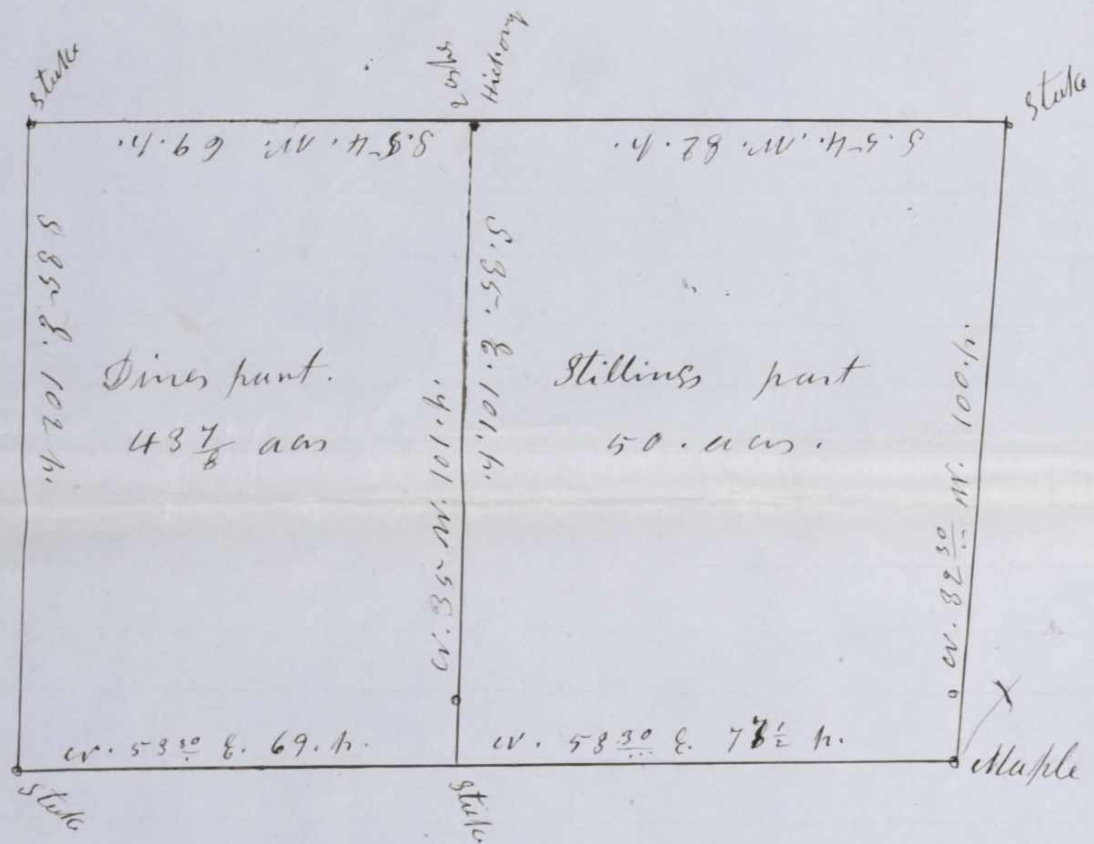 Stake
2 ashes
Hickory
Stake
S. 54. W. 69. p.
S. 54. W. 82. p.
S 35 E. 102 p.
Dines part.
43 7/8 acrs
N. 35 W. 101. p.
S. 35. E. 101. p.
Stillings part
50. acrs.
N. 32 30 W. 100. p.
N. 53 30 E. 69. p.
N. 53 30 E. p.
X
Maple
Stake
Stake